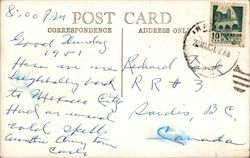 8:00 P.M.
POST CARD
CORRESPONDENCE
ADDRESS ONLY
Good Sunday
1951
Here we are
heading back
to Mexico City
Had an unusual
cold spell
another day
Richard
RR # 3
Sardis, B.C.
Canada
10